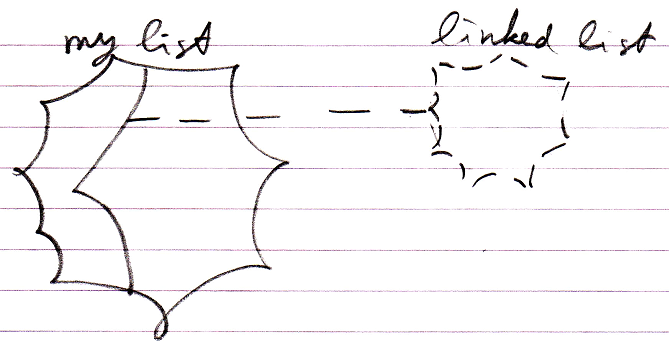 my list
linked list